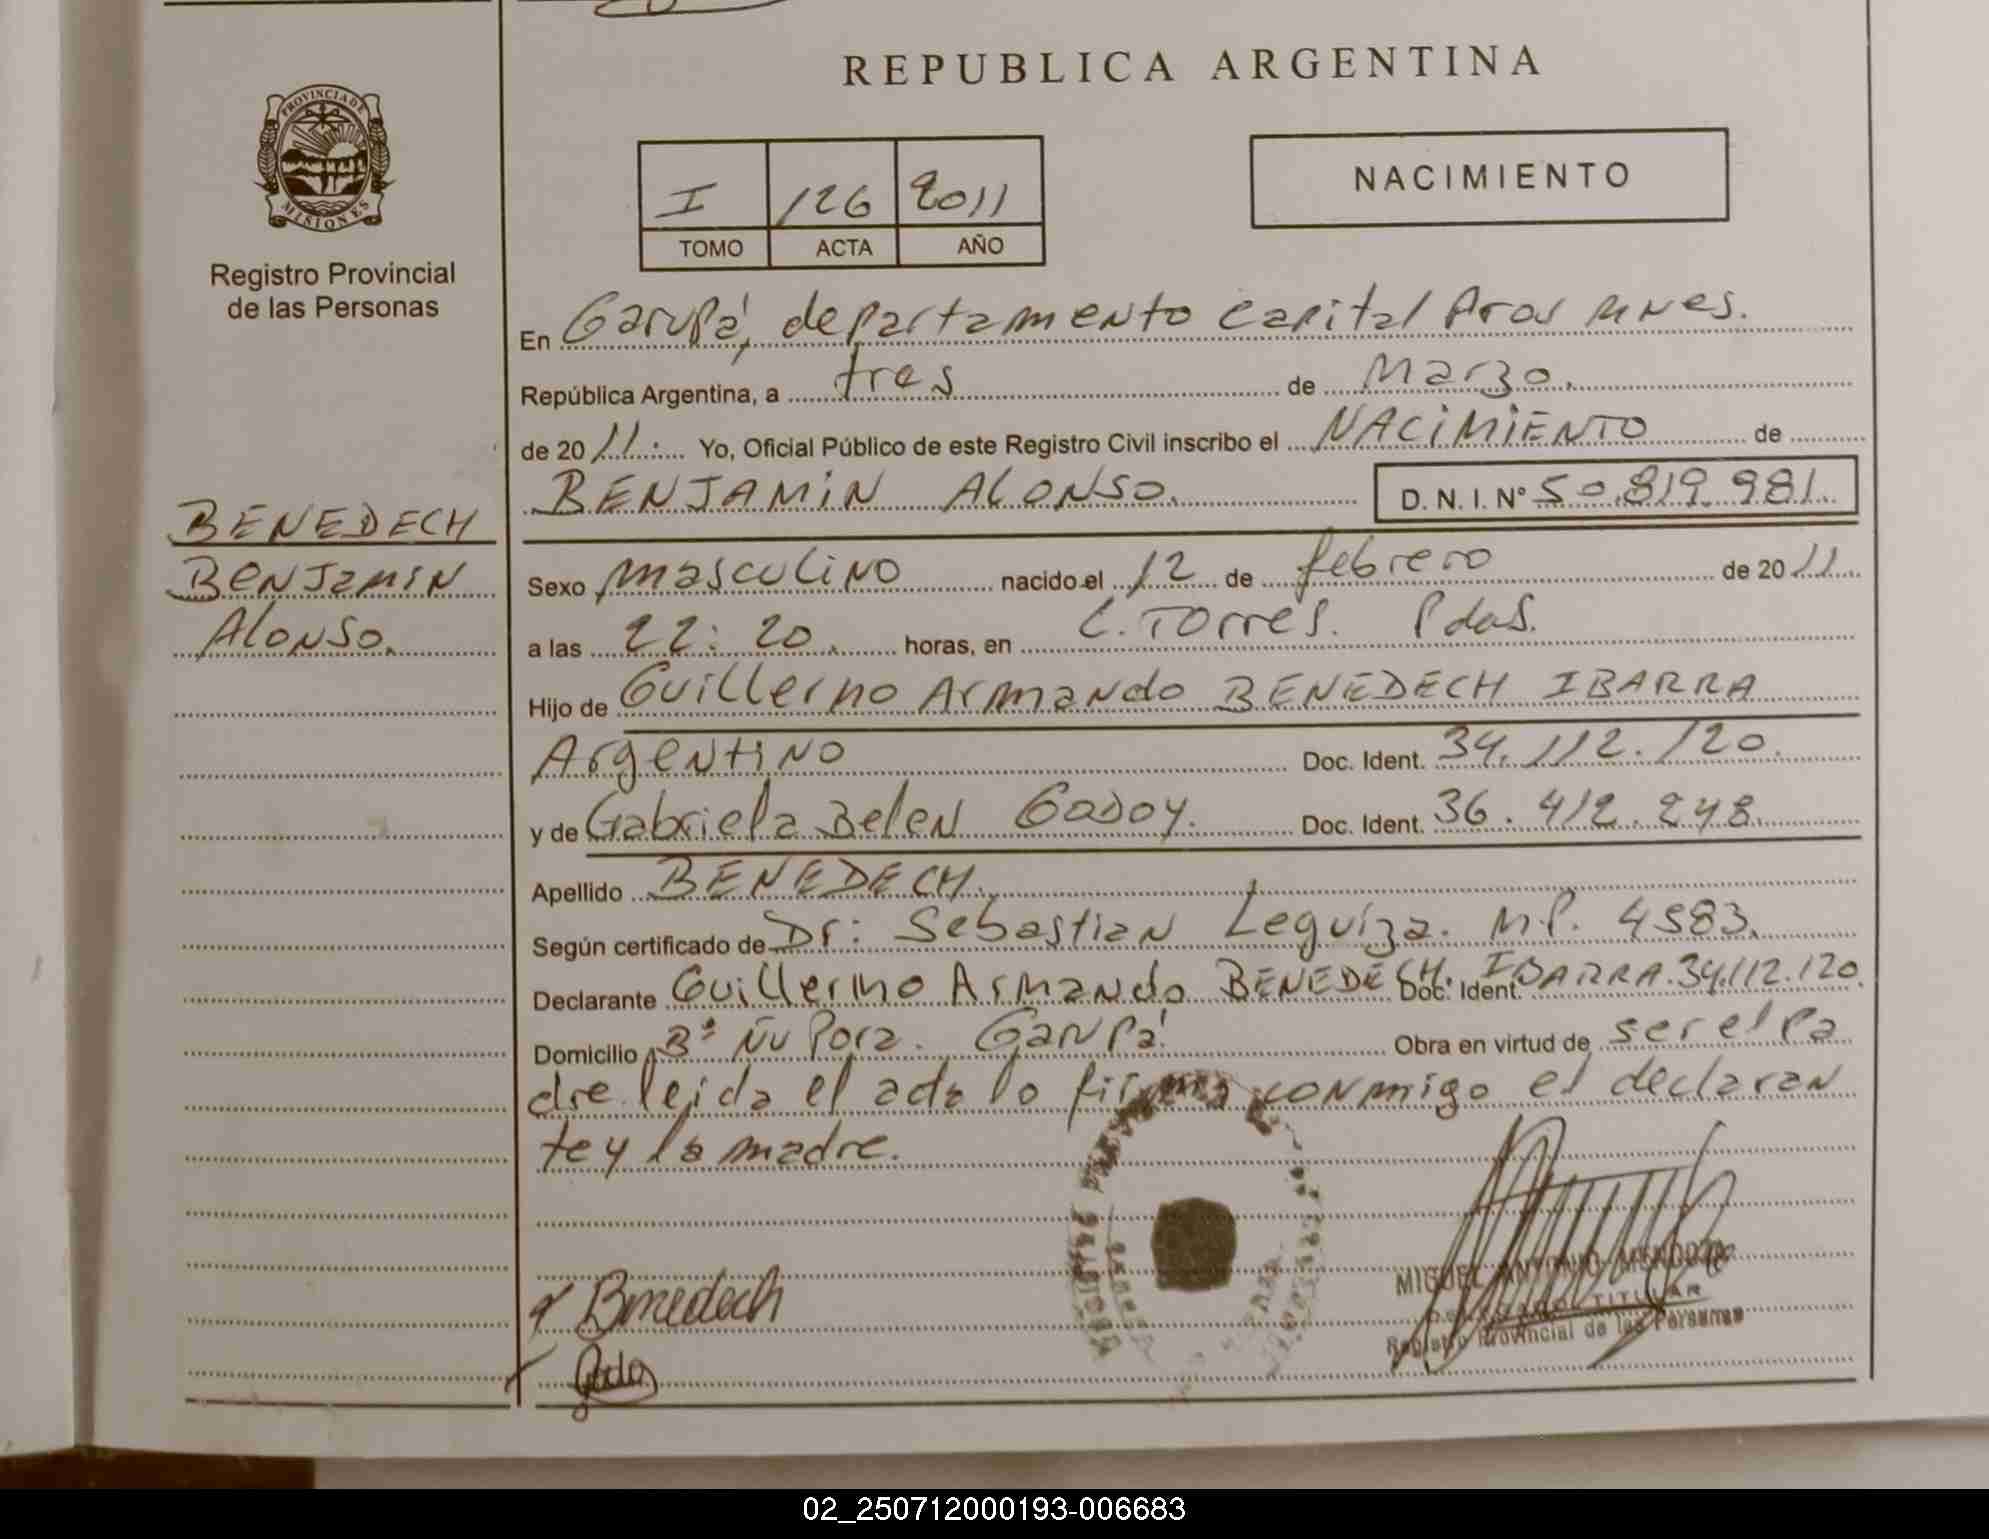 REPUBLICA ARGENTINA
PROVINCIA DE MISIONES
Registro Provincial
de las Personas
I 126 2011
TOMO ACTA AÑO
NACIMIENTO
En Garupá, departamento capital Pros mnes.
República Argentina, a tres de Marzo.
de 2011. Yo, Oficial Público de este Registro Civil inscribo el NACIMIENTO de
BENJAMIN ALONSO. D. N. I. Nº 50.819.981.
BENEDECH
BENJAMIN
ALONSO.
Sexo masculino nacido el 12 de febrero de 2011.
a las 22:20. horas, en C. Torres. Pdas.
Hijo de Guillermo Armando BENEDECH IBARRA
Argentino Doc. Ident. 34.112.120.
y de Gabriela Belen Godoy. Doc. Ident. 36.412.248.
Apellido BENEDECH.
Según certificado de Dr: Sebastian Leguiza. M.P. 4583.
Declarante Guillermo Armando BENEDECH. IBARRA. Doc. Ident. 34.112.120.
Domicilio Bº Ñu Pora. Garupá. Obra en virtud de ser el pa
dre. leida el acta lo firma conmigo el declaran
te y la madre.
Benedech
MIGUEL ANTONIO MENDOZA
DELEGADO TITULAR
Registro Provincial de las Personas
02_250712000193-006683